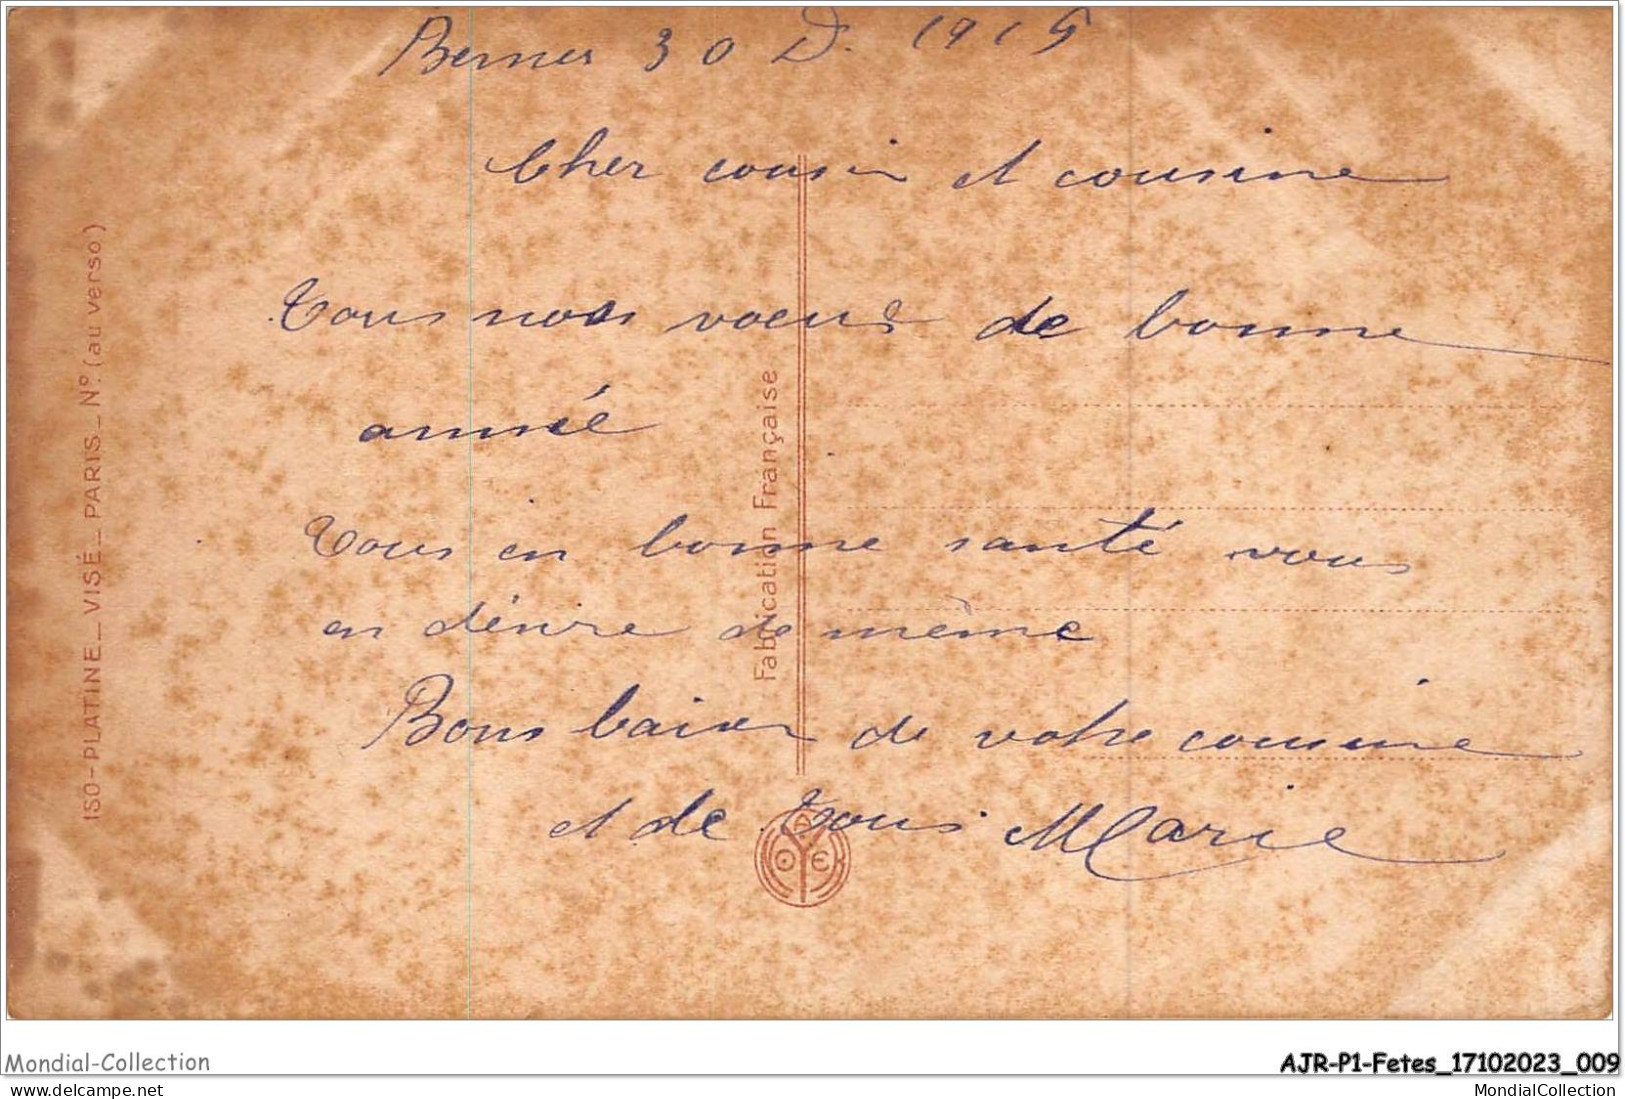 30 D. 1915
Cher cousin et cousine
Tous nos voeux de bonne
année
Tous en bonne santé vous
en désire de même
Bons baiser de votre cousine
et de tous Marie
ISO-PLATINE_VISÉ_PARIS_Nº.(au verso)
Fabrication Française
Mondial-Collection
AJR-P1-Fetes_17102023_009
MondialCollection
© delcampe.net